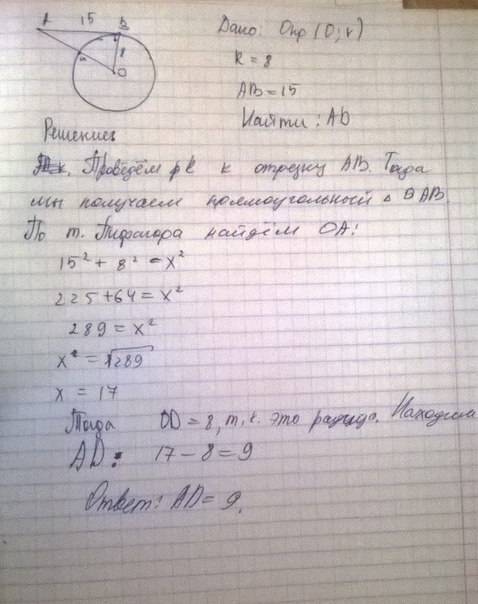 A 15 B
8
O
Дано: Окр (O; r)
R = 8
AB = 15
Найти: AD
Решение:
Проведём R к отрезку AB. Тогда
мы получаем прямоугольный △ OAB.
По т. Пифагора найдём OA:
15² + 8² = x²
225 + 64 = x²
289 = x²
x² = √289
x = 17
Тогда OD = 8, т.к. это радиус. Находим
AD: 17 - 8 = 9
Ответ: AD = 9.